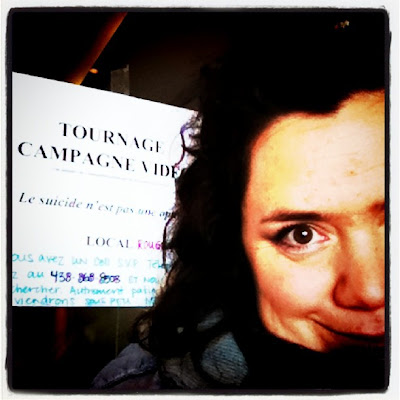 TOURNAGE
CAMPAGNE VIDÉ
Le suicide n'est pas une op
LOCAL ROUG
ous avez un
au 438-868-8503 et nou
chercher. Autrement pati
viendrons sous peu